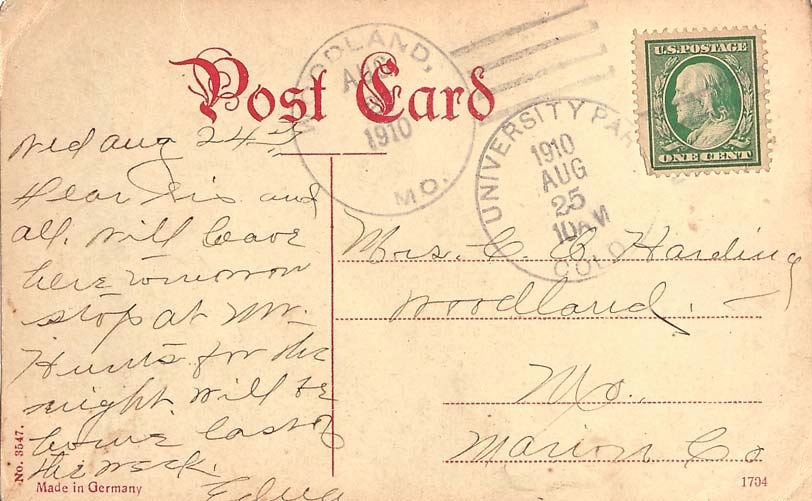 Post Card
WOODLAND,
AUG
1910
MO.
UNIVERSITY PAR
1910
AUG
25
10 AM
COLO
U.S. POSTAGE
ONE CENT
Wed Aug 24th
Dear Sis and
all. Will leave
here tomorrow
stop at Mr.
Hunts for the
night. Will be
home last of
the week.
Edna
Mrs. C. C. Harding
Woodland,
Mo.
Marion Co
No. 3547.
Made in Germany
1794